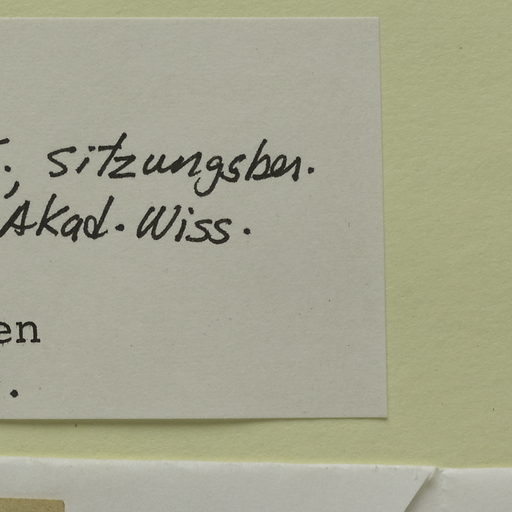 ., Sitzungsber.
Akad. Wiss.
en
.